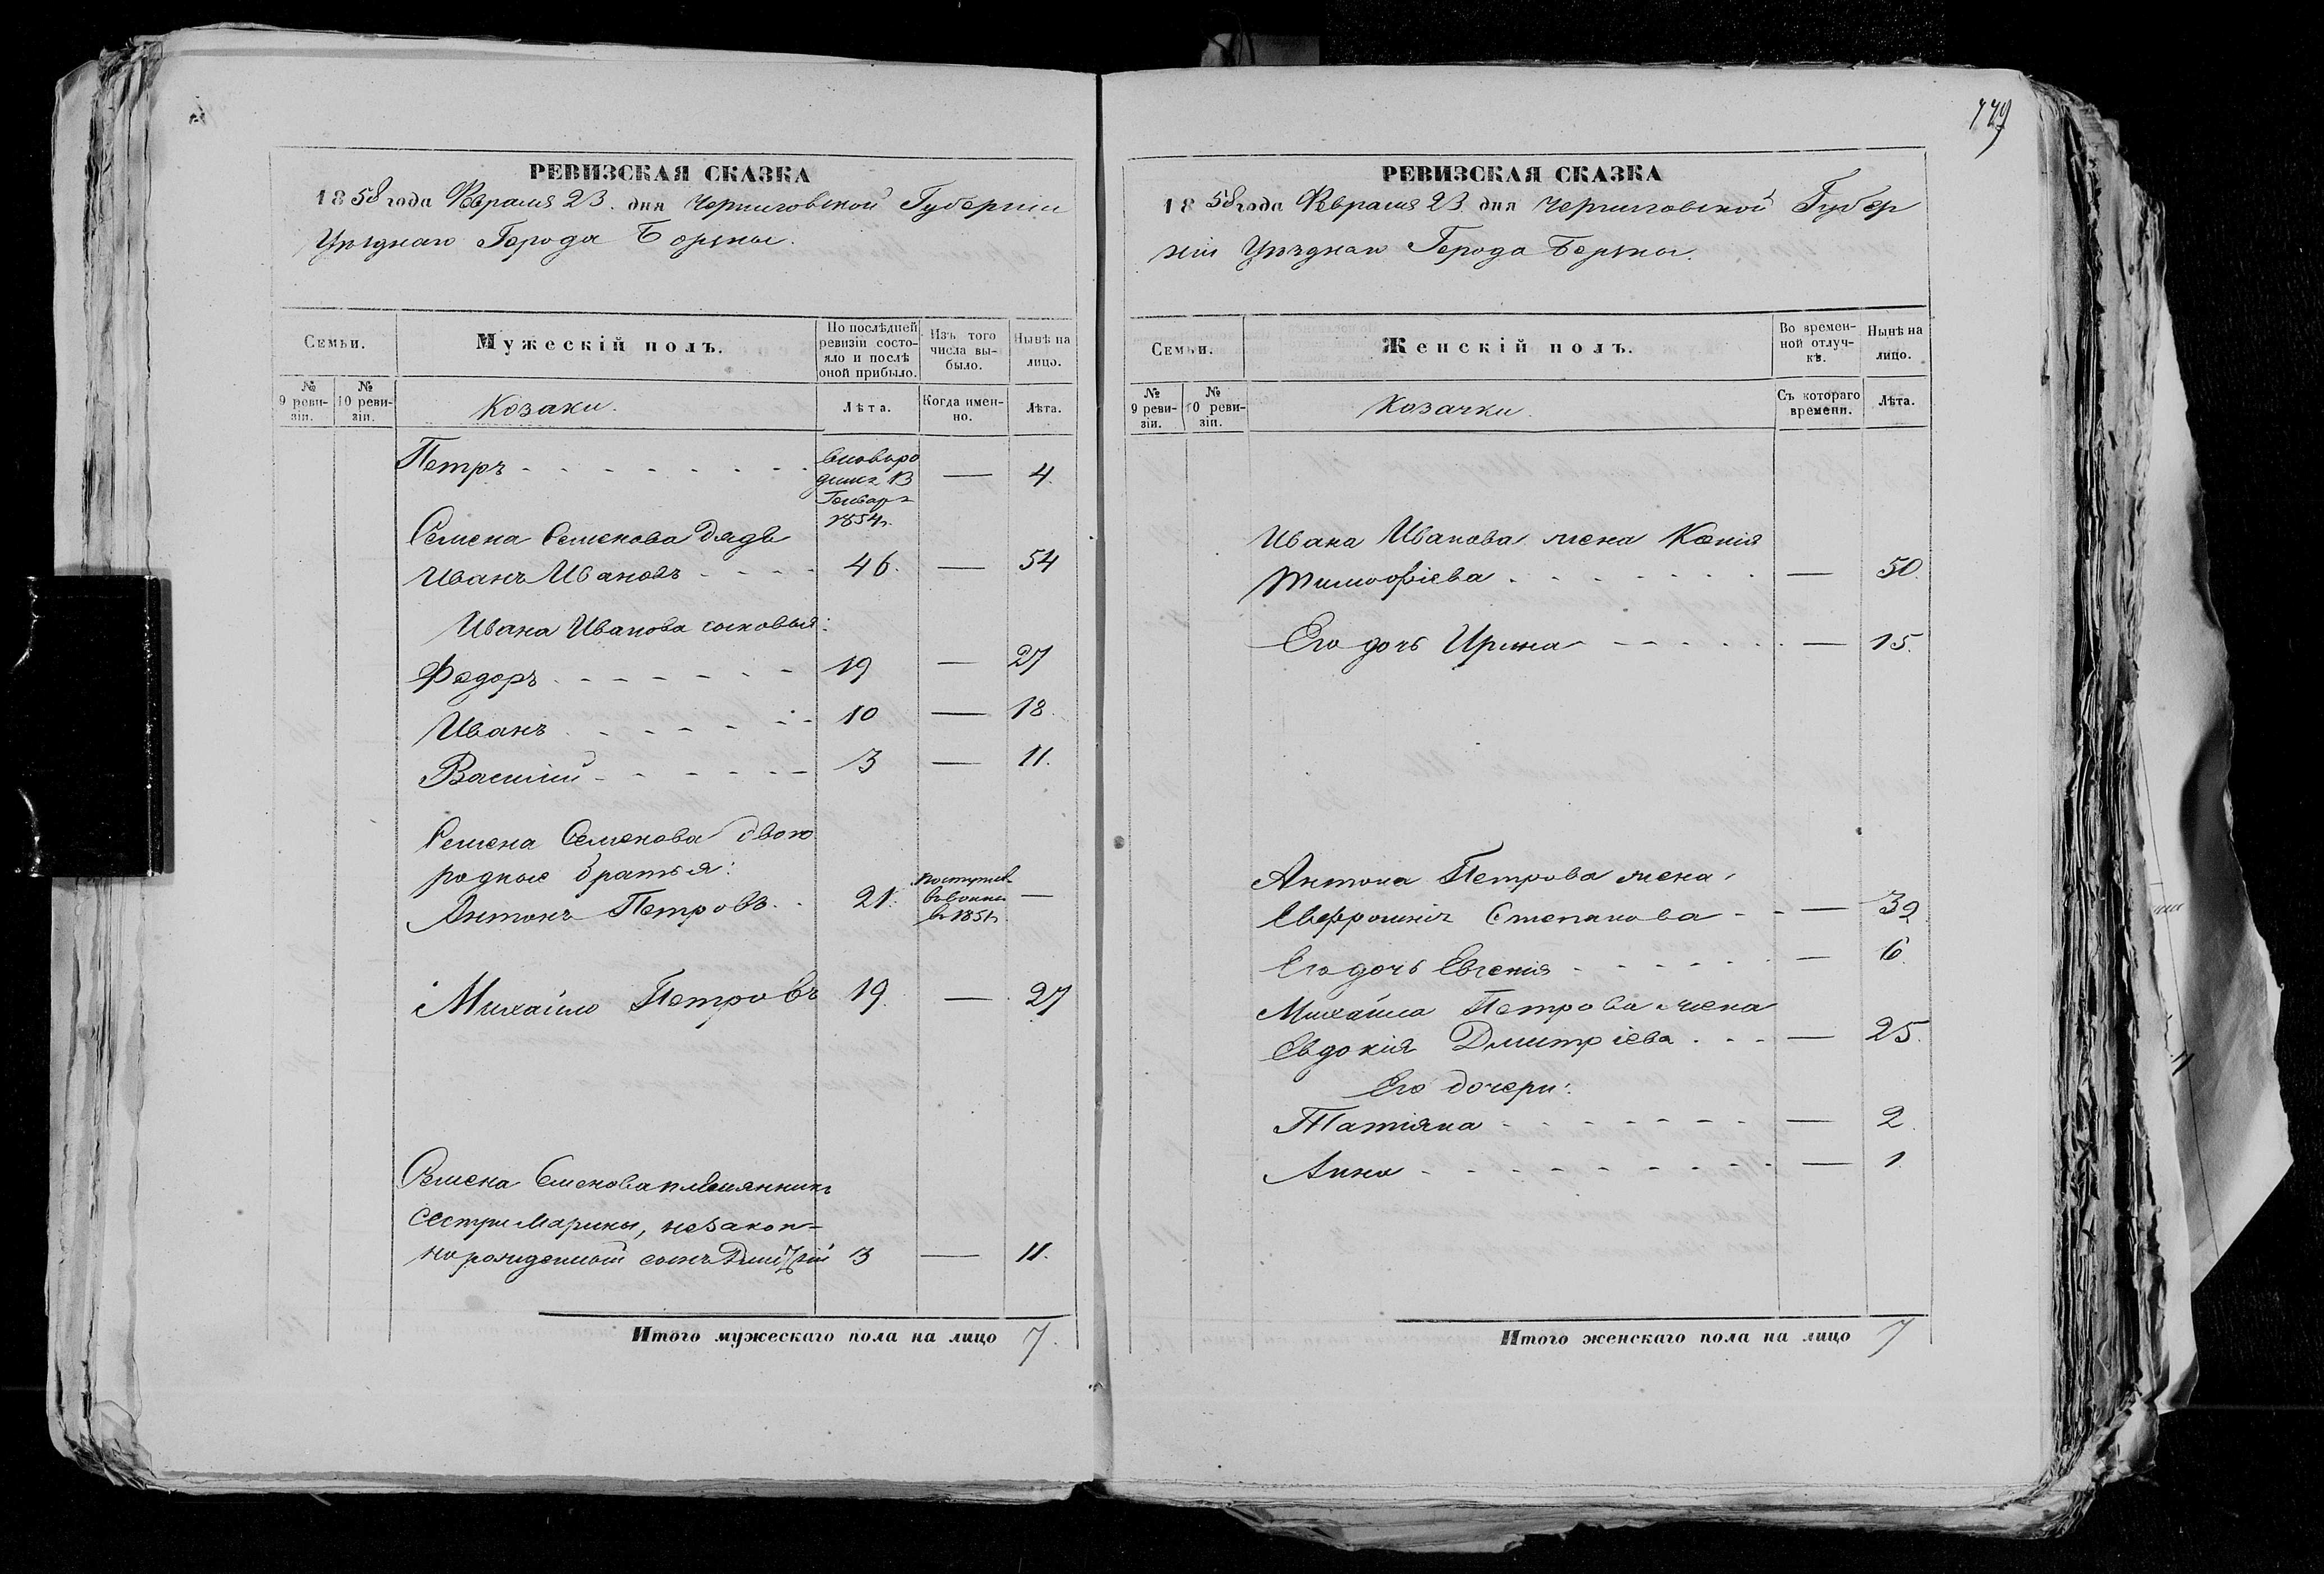 РЕВИЗСКАЯ СКАЗКА
1858 года Февраля 23. дня Черниговской Губернии
Уѣзднаго Города Борзны.
Семьи.
Мужескій полъ.
По послѣдней ревизіи состояло и послѣ оной прибыло.
Изъ того числа выбыло.
Нынѣ на лицо.
№ 9 ревизіи.
№ 10 ревизіи.
Козаки.
Лѣта.
Когда именно.
Лѣта.
Петръ — 4.
Генваря
1854г.
Семена Семенова дядя
Иванъ Ивановъ 46. — 54
Ивана Иванова сыновья:
Федоръ 19 — 27
Иванъ 10 — 18.
Василий 3 — 11.
Семена Семенова двою
родные братья:
Антонъ Петровъ 21. —
Михайло Петровъ 19. — 27
Семена Семенова племянникъ
сестры Марины, незакон-
норожденный сынъ Дмитрій 3 — 11.
Итого мужескаго пола на лицо 7.
779
РЕВИЗСКАЯ СКАЗКА
1858 года Февраля 23. дня Черниговской Губер
ніи Уѣзднаго Города Борзны.
Семьи.
Женскій полъ.
Во временной отлучкѣ.
Нынѣ на лицо.
№ 9 ревизіи.
№ 10 ревизіи.
Козачки.
Съ котораго времени.
Лѣта.
Ивана Иванова жена Ксенія
Тимофіева — 50.
Его дочь Ирина — 15.
Антона Петрова жена
Евфросинія Степанова — 32
Его дочь Евгенія — 6
Михайла Петрова жена
Евдокія Дмитріева — 25.
Его дочери:
Татіяна — 2.
Анна — 1.
Итого женскаго пола на лицо 7